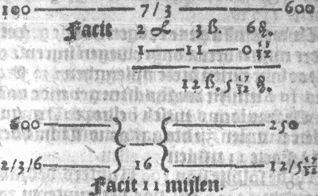 100 —— 7/3 —— 600
Facit 2 ℔. 3 ß. 6 ₰.
1 —— 11 —— 0 17/32
12 ß. 5 17/32 ₰.
600 —— 250
2/3/6 16 12/5 17/32
Facit 11 mijlen.